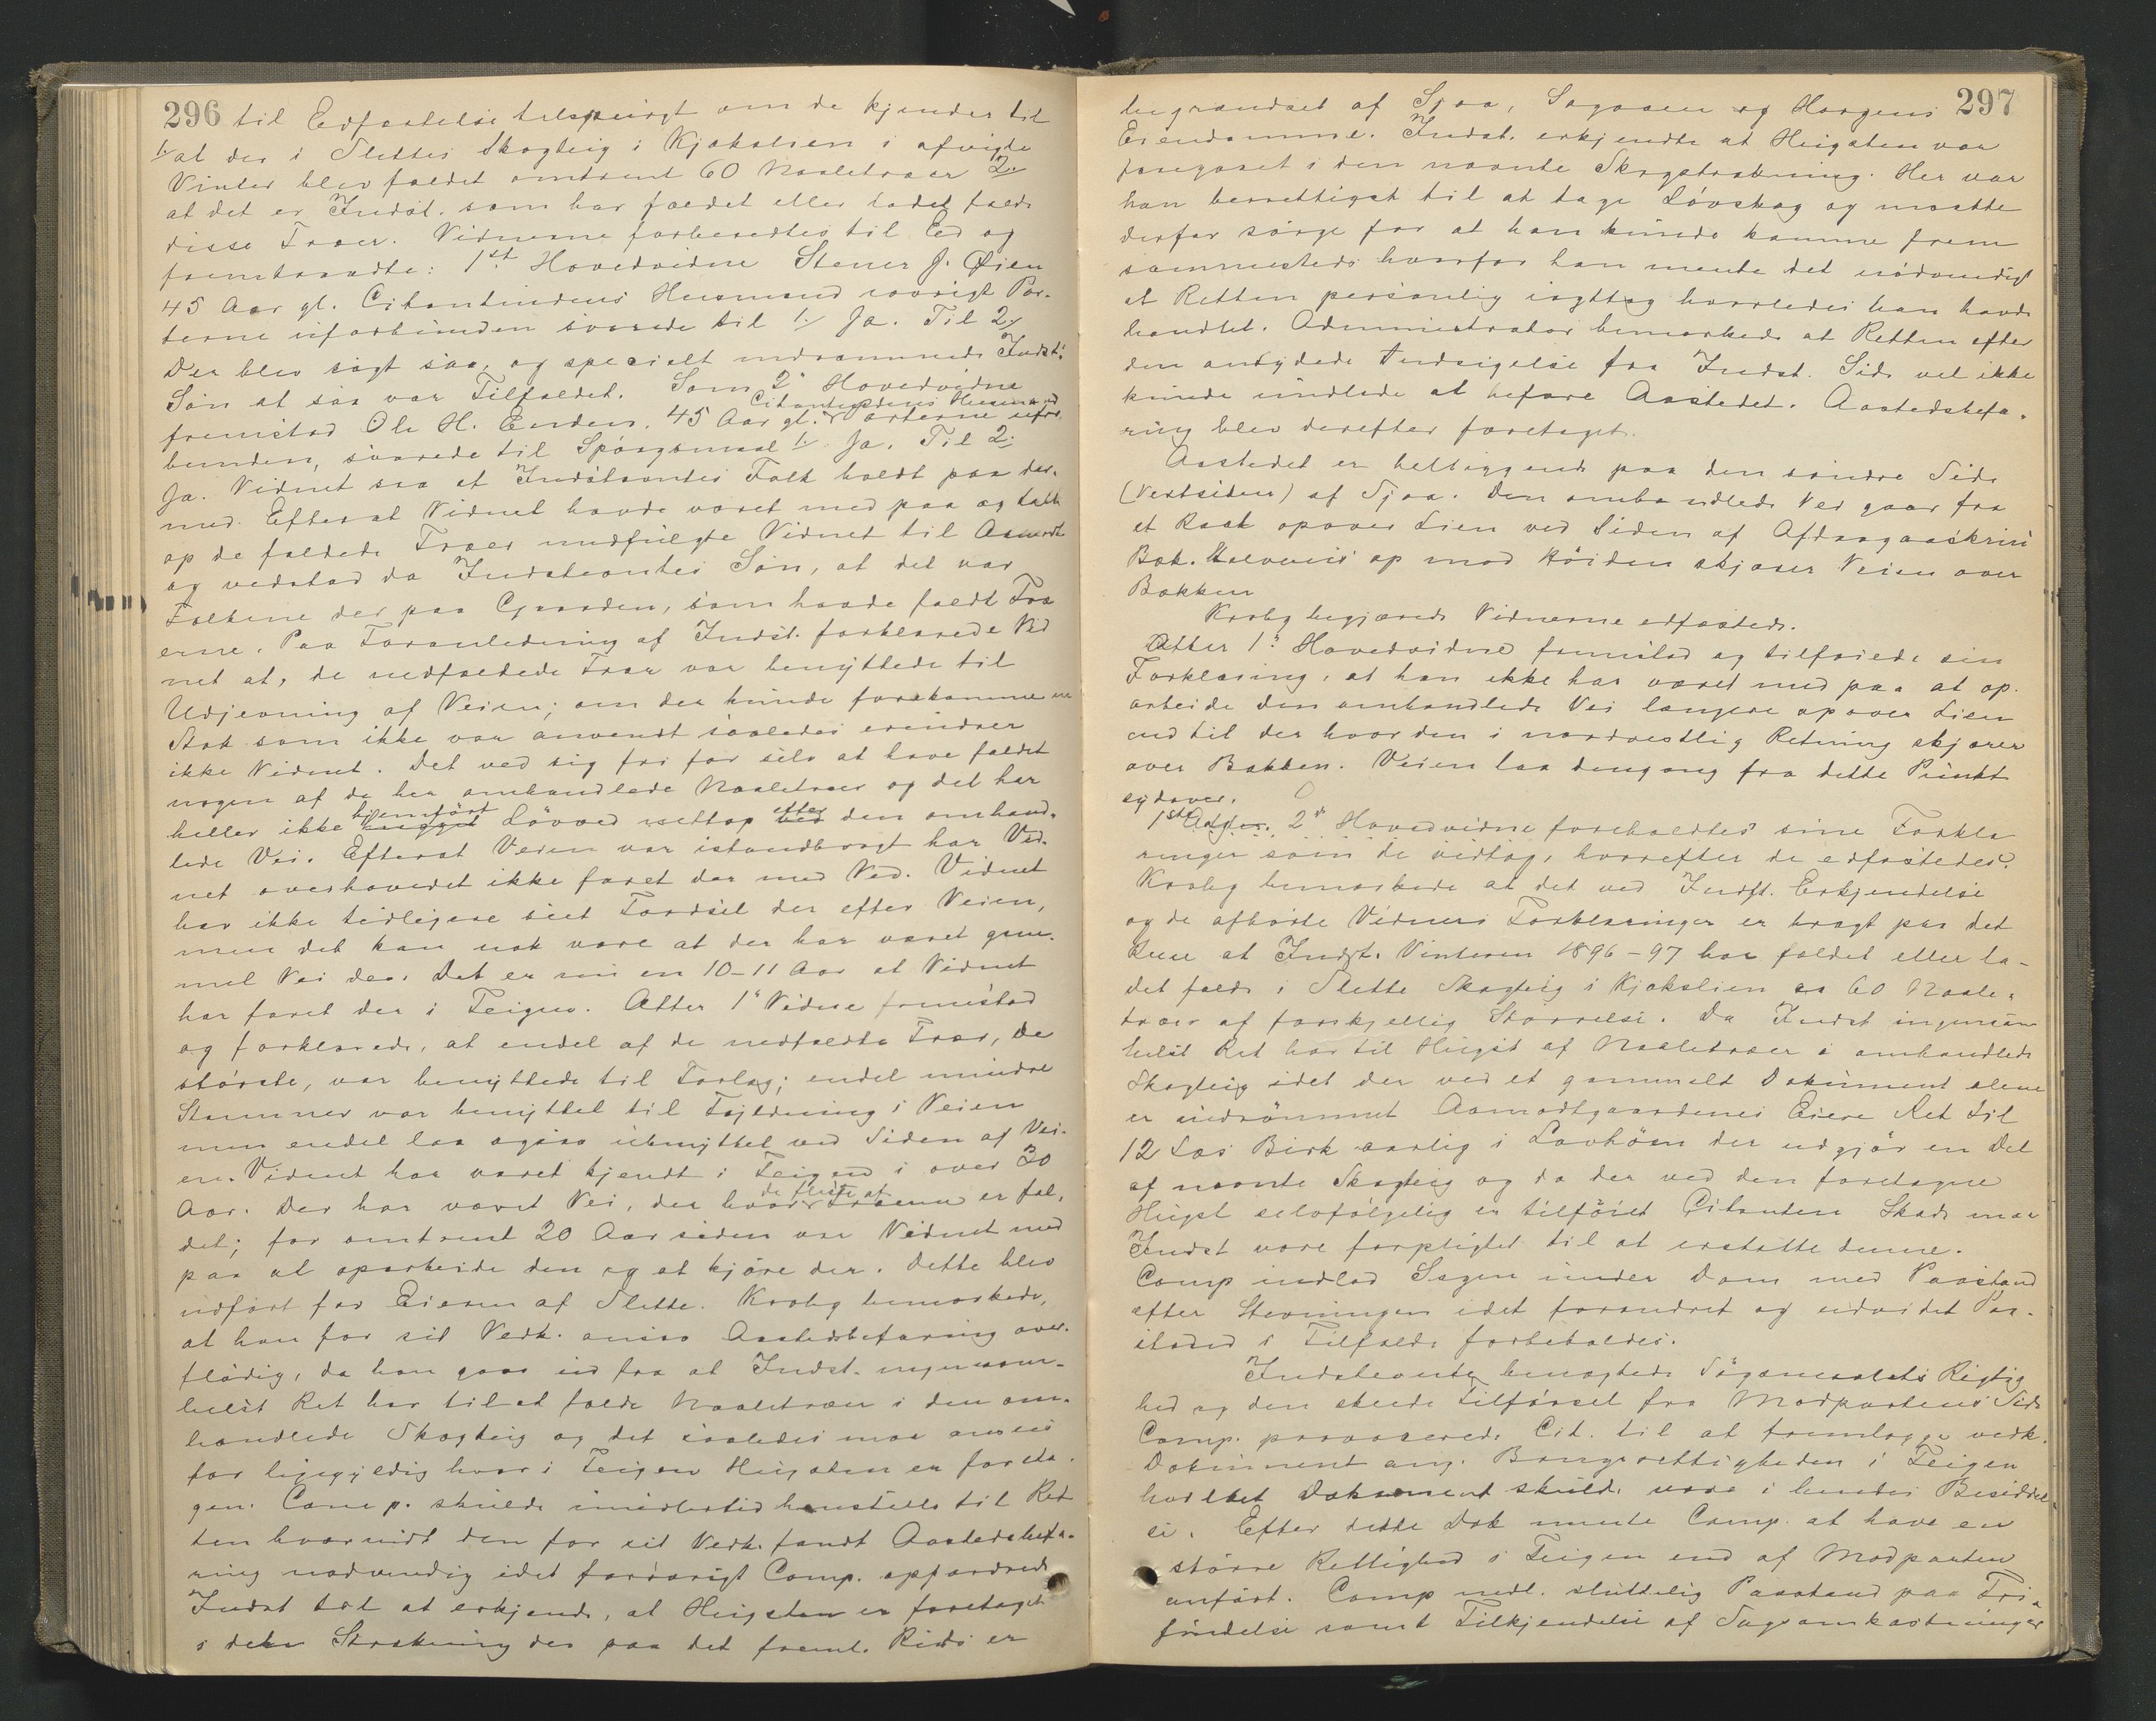 296 til Edfæstelse tilspurgt om de kjender til
1./ at der i Slettes Skogteig i Kjøkalien i afvigte
Vinter blev fældet omtrent 60 Naaletræer 2./
at det er Indst. som har fældet eller ladet fælde
disse Træer. Vidnerne forberedtes til Ed og
fremtraadte: 1st Hovedvidne Stener J. Øien
45 Aar gl. Citantindens Husmand iøvrigt Par-
terne uforbunden svarede til 1./ Ja. Til 2./
Der blev sagt saa, og specielt indrømmede Indst.s
Søn at saa var Tilfældet. Som 2' Hovedvidne
fremstod Ole H. Enden, 45 Aar gl. Citantindens Husmand Parterne ufor-
bunden, svarede til Spørgsmaal 1./ Ja. Til 2./
Ja. Vidnet saa at Indstævntes Folk holdt paa der-
med. Efterat Vidnet havde været med paa og talt
op de fældede Træer medfulgte Vidnet til Aamodt
og vedstod da Indstevntes Søn, at det var
Folkene der paa Gaarden, som havde fældt Træ
erne. Paa Foranledning af Indst. forklarede Vid
net at, de nedfældede Trær var benyttede til
Udjevning af Veien; om der kunde forekomme en
Stok som ikke var anvendt saaledes erindrer
ikke Vidnet. Det ved sig fri for selv at have fældet
nogen af de her omhandlede Naaletræer og det har
heller ikke hjemført Løvved nettop efter den omhand-
lede Vei. Efterat Veien var istandbragt har Vid-
net overhovedet ikke faret der med Ved. Vidnet
har ikke tidligere seet Færdsel der efter Veien,
men det kan nok være at der har været gam-
mel Vei der. Det er nu en 10-11 Aar at Vidnet
har faret der i Teigen. Atter 1' Vidne fremstod
og forklarede, at endel af de nedfældte Trær, de
største, var benyttede til Forlag; endel mindre
Stammer var benyttet til Fyldning i Veien
men endel laa ogsaa ubenyttet ved Siden af Vei-
en. Vidnet har været kjendt i Teigen i over 30
Aar. Der har været Vei, der hvor de fleste af Træerne er fæl-
det; for omtrent 20 Aar siden var Vidnet med
paa at oparbeide den og at kjøre der. Dette blev
udført for Eieren af Slette. Kroby bemærkede,
at han for sit Vedk. ansaa Aastedsbefaring over-
flødig, da han gaar ud fra at Indst. ingensom-
helst Ret har til at fælde Naaletræer i den om-
handlede Skogteig og det saaledes maa ansees
for ligegyldig hvor i Teigen Hugsten er foreta-
gen. Comp. skulde imidlertid henstille til Ret
ten hvorvidt den for sit Vedk. fandt Aastedsbefa-
ring nødvendig idet forøvrigt Comp. opfordrede
Indst til at erkjende, at Hugsten er foretaget
i den Strækning der paa det freml. Rids er
297
begrændset af Sjoa, Sagaaen og Haagens
Eiendomme. Indst. erkjendte at Hugsten var
foregaaet i den nævnte Skogstrækning. Her var
han berettiget til at tage Løvskog og maatte
derfor sørge for at han kunde komme frem
sammesteds hvorfor han mente det nødvendigt
at Retten personlig iagttog hvorledes han havde
handlet. Administrator bemærkede at Retten efter
den antydede Indsigelse fra Indst. Side vel ikke
kunde undlade at befare Aastedet. Aastedsbefa-
ring blev derefter foretaget.
Aastedet er beliggende paa den søndre Side
(Vestsiden) af Sjoa. Den omhandlede Vei gaar fra
et Rast opover Lien ved Siden af
Bæk. Halvveis op mod Høiden skjærer Veien over
Bækken
Kroby begjærede Vidnerne edfæstede.
Atter 1' Hovedvidne fremstod og tilføiede sin
Forklaring, at han ikke har været med paa at op-
arbeide den omhandlede Vei længere opover Lien
end til der hvor den i nordvestlig Retning skjærer
over Bækken. Veien laa dengang fra dette Punkt
sydover.
1ste og 2' Hovedvidne foreholdtes sine Forkla
ringer som de vedtog, hvorefter de edfæstedes.
Kroby bemærkede at det ved Indst. Erkjendelse
og de afhørte Vidners Forklaringer er bragt paa det
Rene at Indst. Vinteren 1896-97 har fældet eller la-
det fælde i Slette Skogteig i Kjøkalien ca 60 Naale-
træer af forskjellig Størrelse. Da Indst ingensom-
helst Ret har til Hugst af Naaletræer i omhandlede
Skogteig idet der ved et gammelt Dokument alene
er indrømmet Aamodtgaardenes Eiere Ret til
12 Læs Birk aarlig i Lavhøen der udgjør en Del
af nævnte Skogteig og da der ved den foretagne
Hugst selvfølgelig er tilføiet Citanten Skade maa
Indst være forpligtet til at erstatte denne.
Comp indlod Sagen under Dom med Paastand
efter Stevningen idet forandret og udvidet Paa-
stand i Tilfælde forbeholdes.
Indstevnte benægtede Søgsmaalets Rigtig
hed og den skeede Tilførsel fra Modpartens Side
Comp. provocerede Cit. til at fremlægge vedk.
Dokument ang. Brugsrettigheden i Teigen
hvilket Dokument skulde være i hendes Besiddel-
se. Efter dette Dok mente Comp. at have en
større Rettighed i Teigen end af Modparten
anført. Comp nedl. sluttelig Paastand paa Fri-
findelse samt Tilkjendelse af Sagsomkostninger